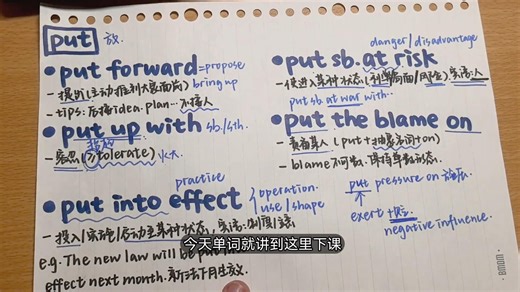 put 放.
• put forward = propose
bring up
- 提出(主动推到大家面前)
- tips: 后接idea. plan... 不接人
• put up with sb./sth.
- 容忍(≈tolerate)
practice
• put into effect operation
use / shape
- 投入/实施/启动至某种状态,
e.g. The new law will be put into
effect next month. 新法下月生效
danger / disadvantage
• put sb. at risk
- 使进入某种状态(
put sb. at war with...
• put the blame on
- 责备某人 (put+抽象名词+on)
- blame不可数. 保持单数形态.
put pressure on 施压
exert
negative influence.
今天单词就讲到这里下课